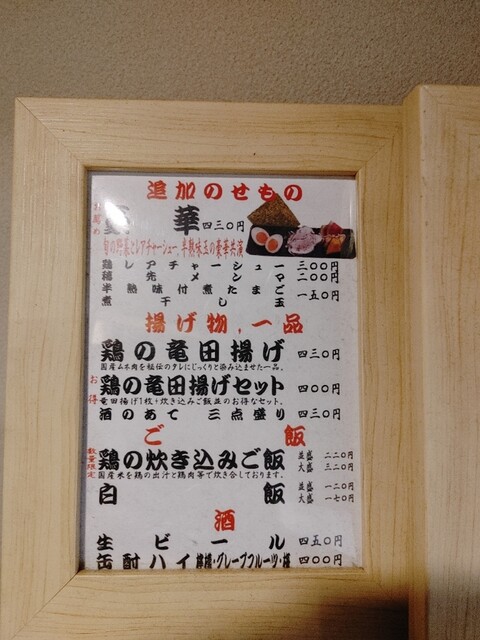 追加のせもの
お薦め
華 四三〇円
旬の野菜とレアチャーシュー、半熟味玉の豪華共演
鶏レアチャーシュー 三〇〇円
穂先メンマ 二〇〇円
半熟味付煮たまご 一五〇円
煮干し玉
揚げ物、一品
鶏の竜田揚げ 四三〇円
国産ムネ肉を秘伝のタレにじっくりと染み込ませた一品。
お得
鶏の竜田揚げセット 四〇〇円
竜田揚げ1枚+炊き込みご飯並のお得なセット。
酒のあて 三点盛り 四三〇円
ご飯
数量限定
鶏の炊き込みご飯 並盛 二二〇円
大盛 三二〇円
国産米を鶏の出汁と鶏肉等で炊き合しております。
白飯 並盛 一二〇円
大盛 一七〇円
酒
生ビール 四五〇円
缶酎ハイ ・グレープフルーツ・ 四〇〇円